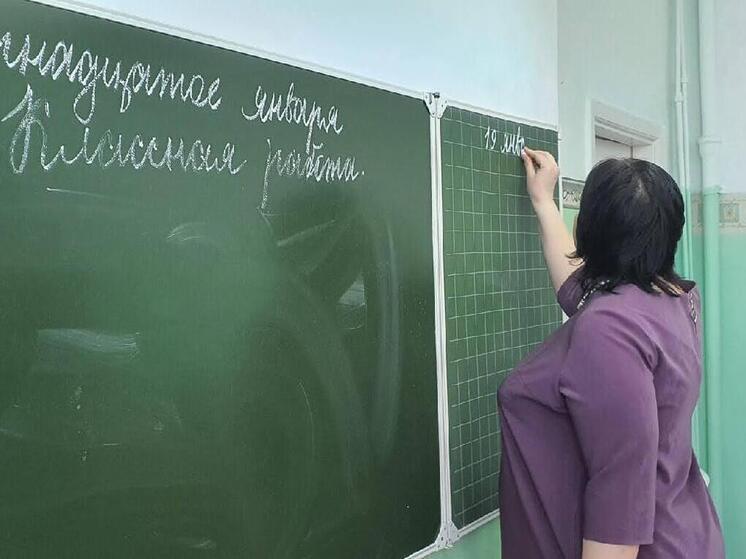 надцатое января
Классная работа.
19 янв